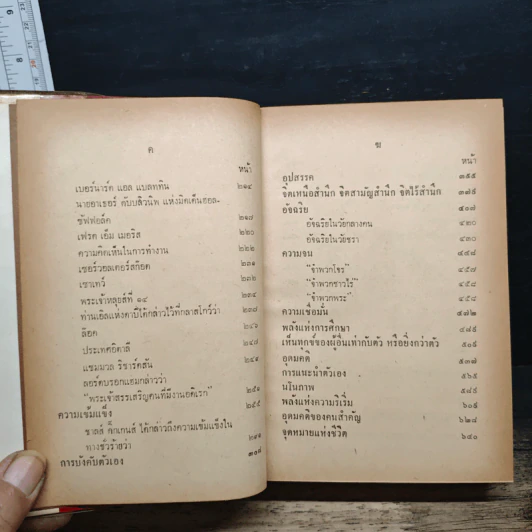 ค
หน้า
เบอร์นาร์ด แอล แบลททิน ๒๑๔
นายอาเธอร์ คับบลิวนิพ แห่งมิดเดิ้นฮอล-
ซัฟฟอล์ค ๒๑๗
เฟรด เอ็ม เมอริส ๒๒๐
ความคิดเห็นในการทำงาน ๒๒๒
เซอร์วอลเตอร์สก๊อต ๒๓๑
เซาเทว์ ๒๓๒
พระเจ้าหลุยส์ที่ ๑๔ ๒๓๔
ท่านเอิลแห่งดาบี้ได้กล่าวไว้ที่กลาสโกว์ว่า ๒๓๗
ล๊อค
ประเทศอิตาลี ๒๔๗
แซมมวล ริชาร์ดสัน
ลอร์ดบรอกแฮมกล่าวว่า
“พระเจ้าสรรเสริญคนที่มีงานอดิเรก” ๒๕๑
ความเข้มแข็ง ๒๕๕
ชาลส์ ดิ๊กเกนส์ ได้กล่าวถึงความเข้มแข็งใน
ทางชั่วร้ายว่า
การบังคับตัวเอง
ฆ
หน้า
อุปสรรค ๓๕๕
จิตเหนือสำนึก จิตสามัญสำนึก จิตไร้สำนึก
อัจฉริย ๔๐๗
อัจฉริยในวัยกลางคน ๔๒๐
อัจฉริยในวัยชรา ๔๓๐
ความจน
“จำพวกโซร” ๔๕๗
“จำพวกชาวไร่” ๔๕๘
“จำพวกพระ” ๔๕๘
ความเชื่อมั่น ๔๗๒
พลังแห่งการศึกษา
เห็นทุกข์ของผู้อื่นเท่ากับตัว หรือยิ่งกว่าตัว
อุดมคติ ๕๓๗
การแนะนำตัวเอง ๕๖๕
มโนภาพ
พลังแห่งความริเริ่ม ๖๐๕
อุดมคติของคนสำคัญ ๖๒๘
จุดหมายแห่งชีวิต ๖๔๐